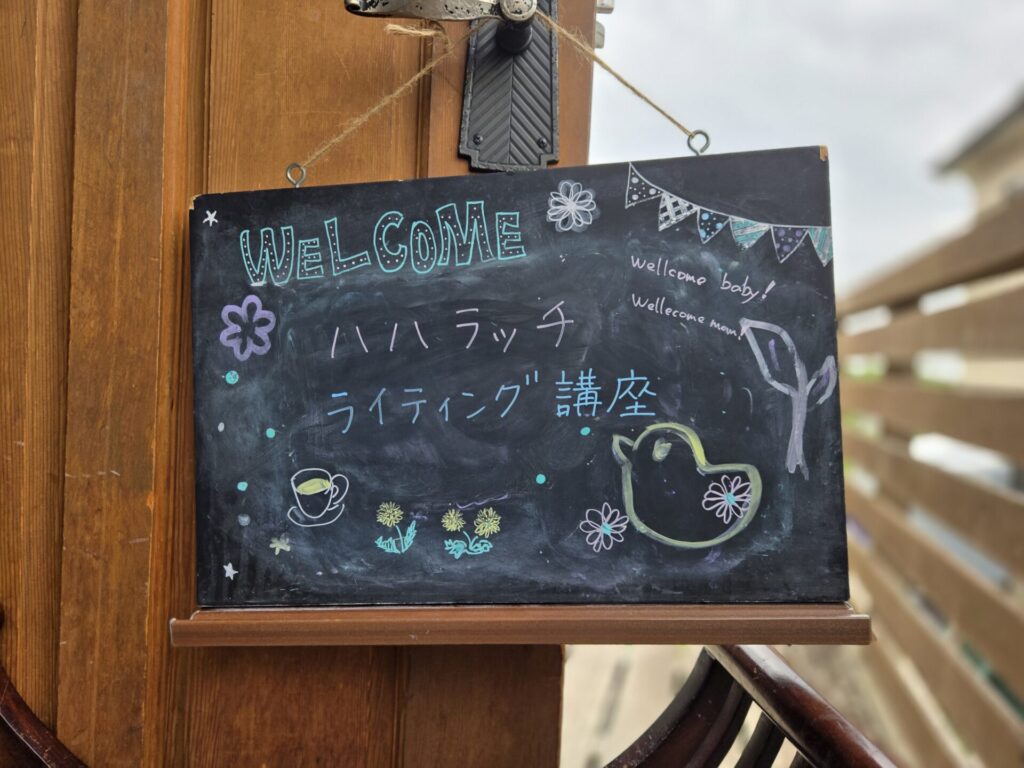 WELCOME
Wellcome baby!
Wellecome mam!
ハハラッチ
ライティング講座